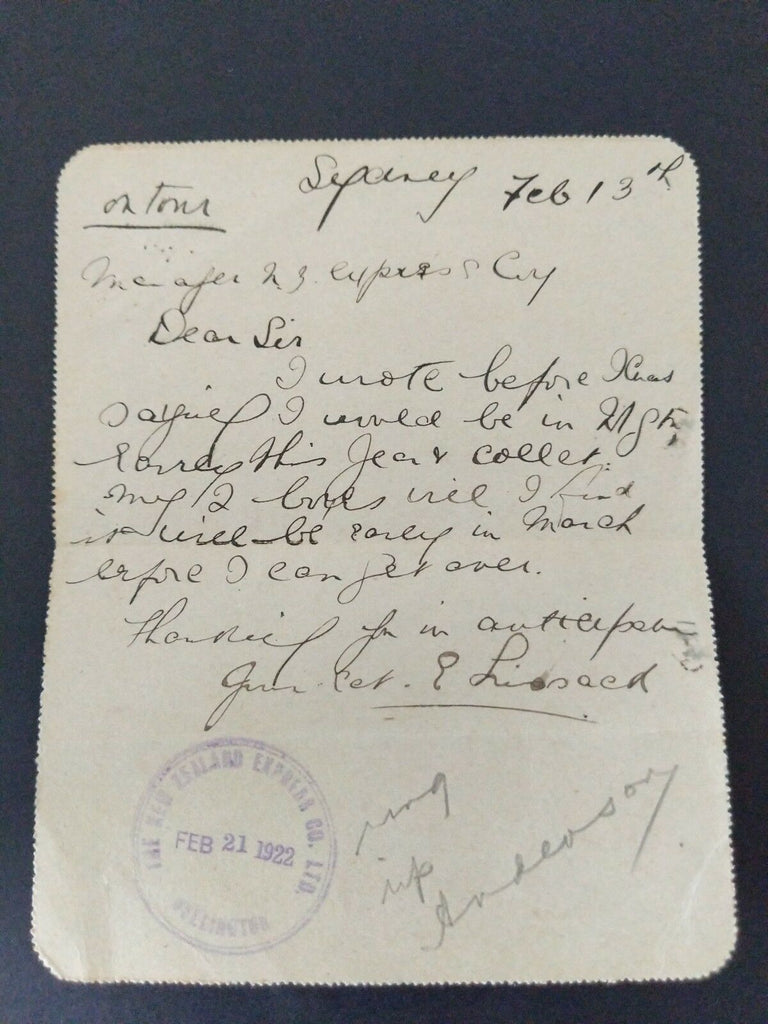 on tour
Sydney Feb 13th
Manager N.Z. Express Coy
Dear Sir
I wrote before Xmas
saying I would be in
early this year & collect
my 2 boxes will I find
it will be early in March
before I can get over.
Thanking you in
E
THE NEW ZEALAND EXPRESS CO. LTD.
FEB 21 1922
WELLINGTON
ring
up
Anderson